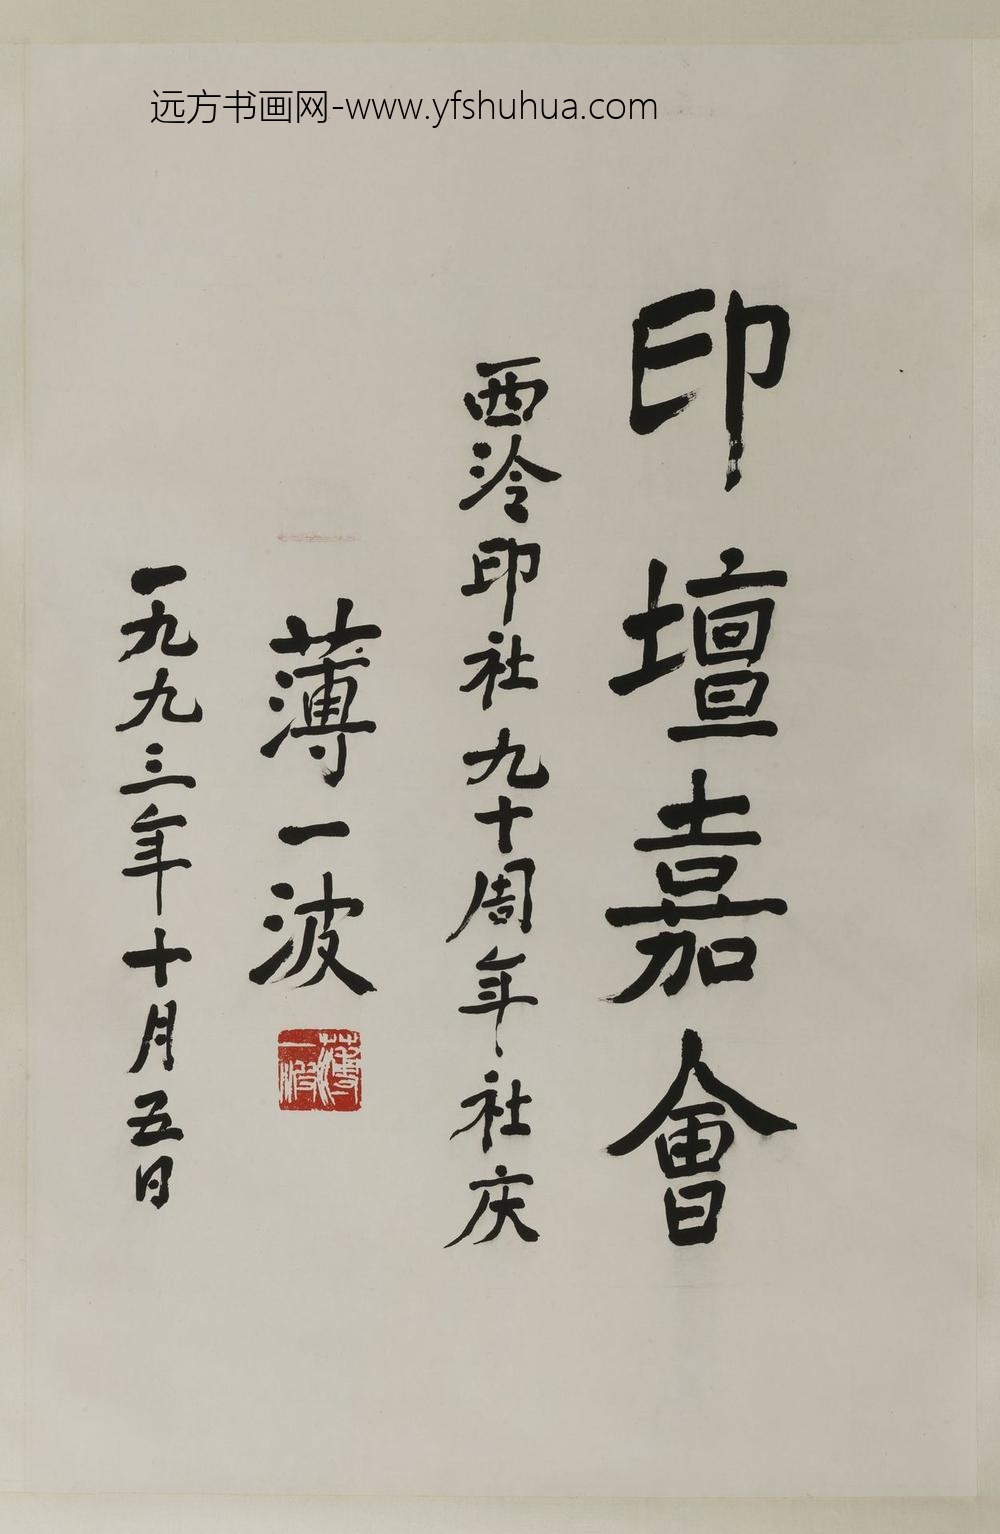 远方书画网-www.yfshuhua.com
印壇嘉會
西泠印社九十周年社庆
薄一波
薄一波
一九九三年十月五日